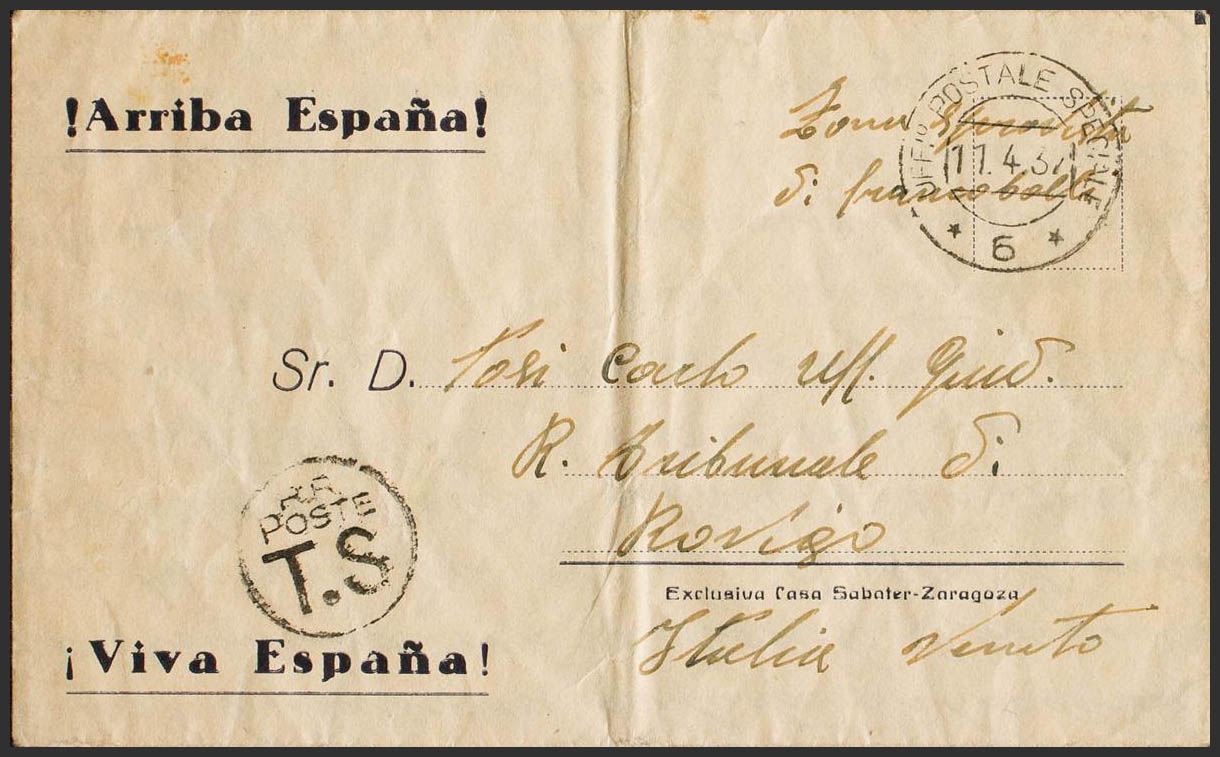 !Arriba España!
Zona sprovvista
di francobolli
UFF° POSTALE SPECIALE
11.4.37
* 6 *
Sr. D. Tosi Carlo Uff. Giud.
R. Tribunale di
Rovigo
Exclusiva Casa Sabater-Zaragoza
Italia Veneto
RR. POSTE
T.S
¡Viva España!